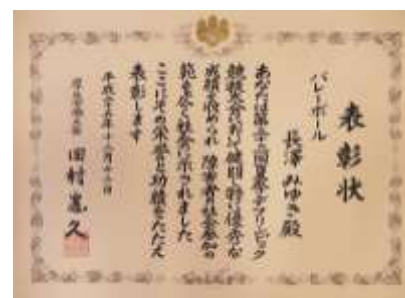 表彰状
バレーボール
長澤みゆき殿
あなたは第二十二回夏季デフリンピック
競技大会において健闘し特に優秀な
成績を収められ障害者社会参加の
範を広く社会に示されました
ここにその栄誉と功績をたたえ
表彰します
平成二十五年十二月十二日
厚生労働大臣 田村憲久